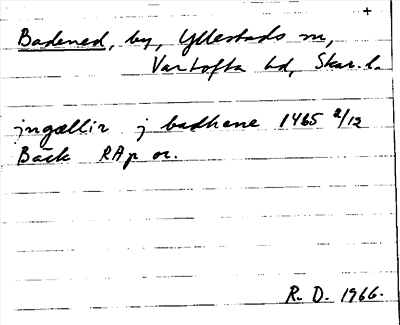 +
Badened, by, Yllestads sn,
Vartofta hd, Skar. l.
jngællir j badhene 1465 2/12
Bäck RAp or.
R. D. 1966.